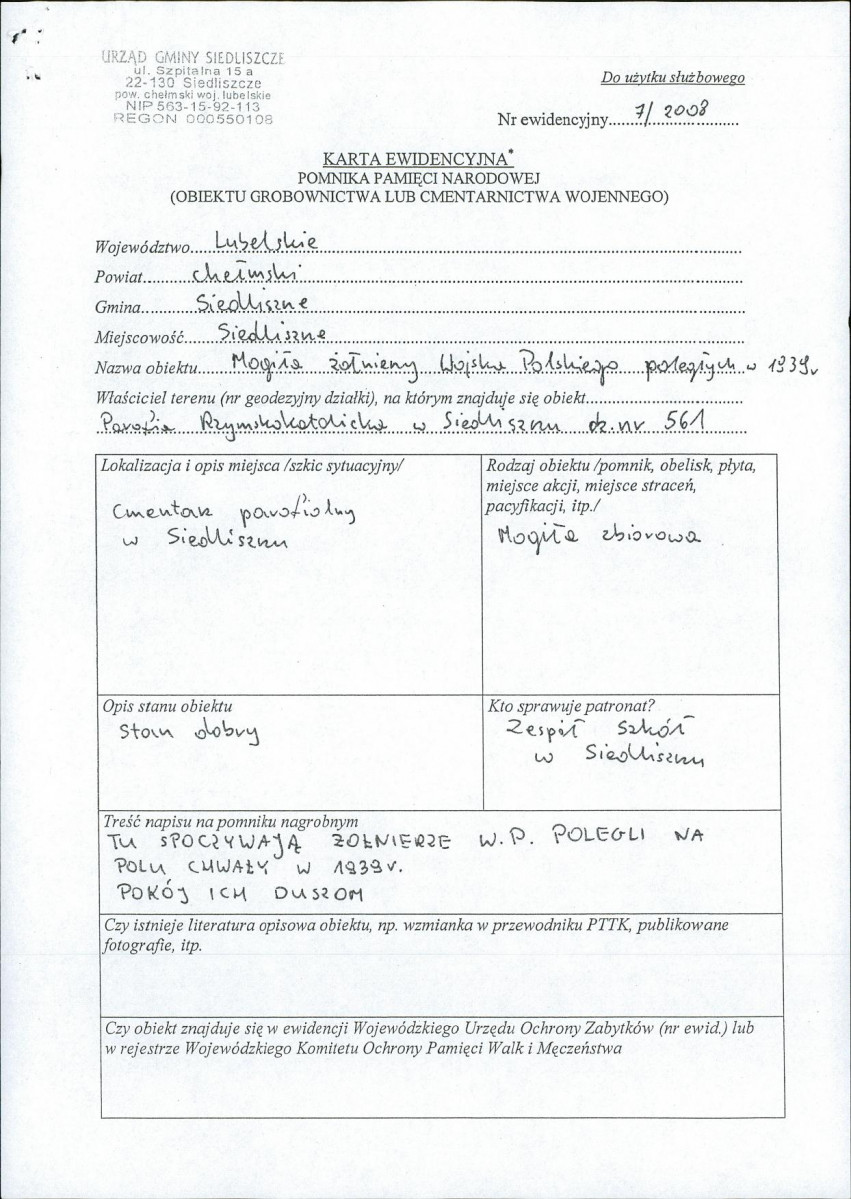 URZĄD GMINY SIEDLISZCZE
ul. Szpitalna 15 a
22-130 Siedliszcze
pow. chełmski woj. lubelskie
NIP 563-15-92-113
REGON 000550108
Do użytku służbowego
Nr ewidencyjny 7/2008
KARTA EWIDENCYJNA*
POMNIKA PAMIĘCI NARODOWEJ
(OBIEKTU GROBOWNICTWA LUB CMENTARNICTWA WOJENNEGO)
Województwo Lubelskie
Powiat chełmski
Gmina Siedliszcze
Miejscowość Siedliszcze
Nazwa obiektu Mogiła żołnierzy Wojska Polskiego poległych w 1939r
Właściciel terenu (nr geodezyjny działki), na którym znajduje się obiekt
Parafia Rzymskokatolicka w Siedliszczu dz. nr 561
Lokalizacja i opis miejsca /szkic sytuacyjny/
Cmentarz parafialny
w Siedliszczu
Rodzaj obiektu /pomnik, obelisk, płyta,
miejsce akcji, miejsce straceń,
pacyfikacji, itp./
Mogiła zbiorowa
Opis stanu obiektu
Stan dobry
Kto sprawuje patronat?
Zespół Szkół
w Siedliszczu
Treść napisu na pomniku nagrobnym
TU SPOCZYWAJĄ ŻOŁNIERZE W.P. POLEGLI NA
POLU CHWAŁY W 1939r.
POKÓJ ICH DUSZOM
Czy istnieje literatura opisowa obiektu, np. wzmianka w przewodniku PTTK, publikowane
fotografie, itp.
Czy obiekt znajduje się w ewidencji Wojewódzkiego Urzędu Ochrony Zabytków (nr ewid.) lub
w rejestrze Wojewódzkiego Komitetu Ochrony Pamięci Walk i Męczeństwa